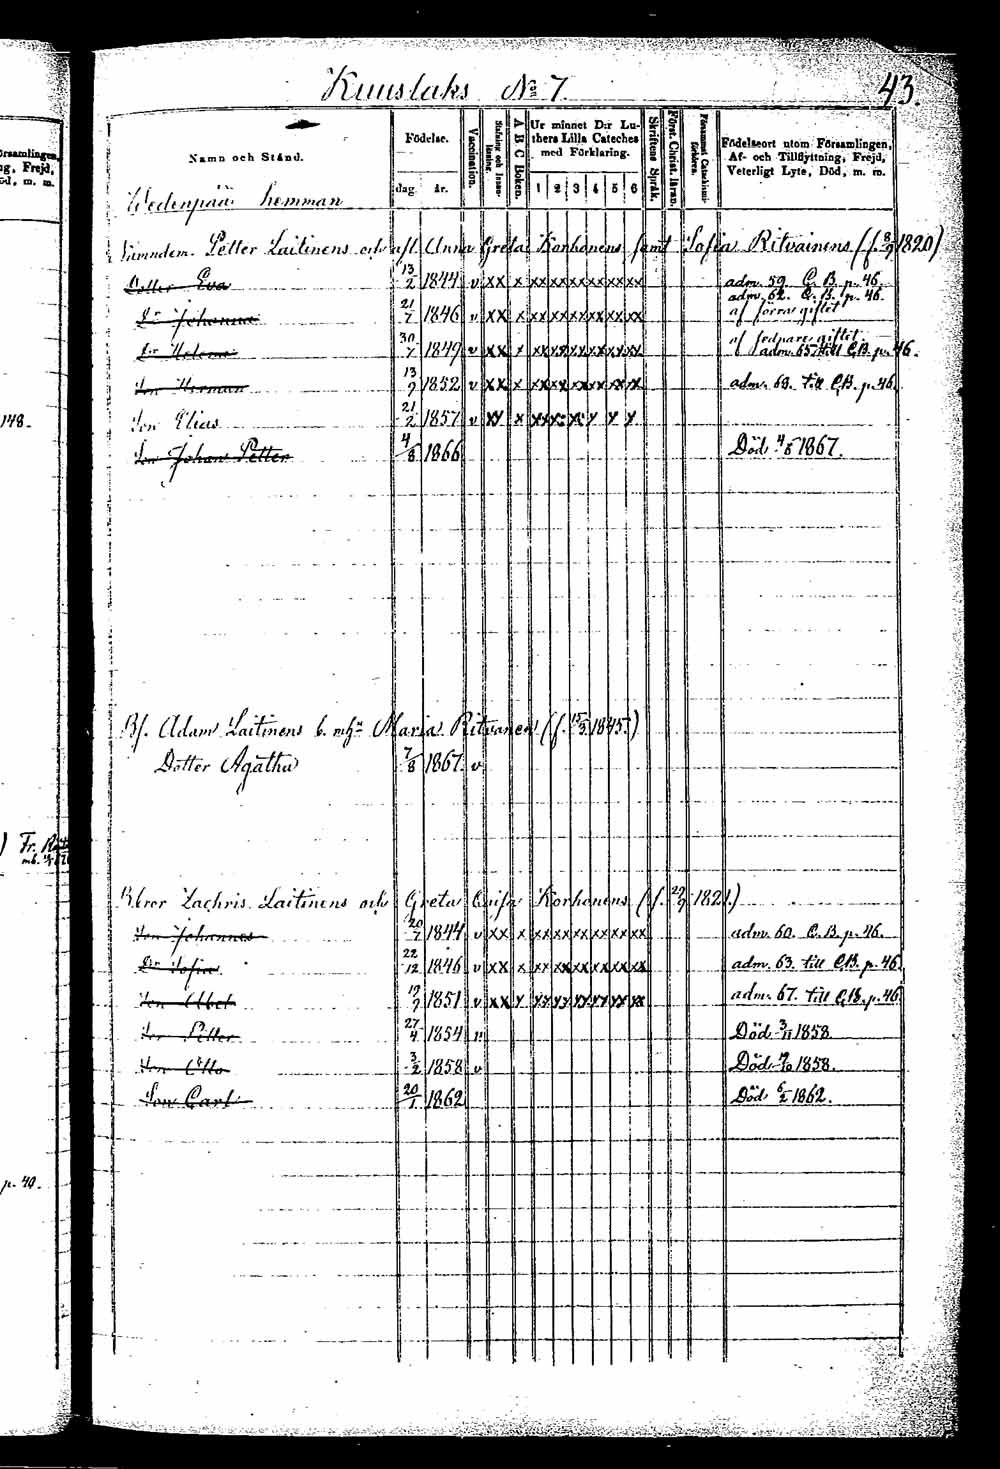 Kuuslaks No 7.
43.
Namn och Stånd.
Födelse.
dag. år.
Vaccination.
A B C Boken.
Ur minnet D:r Luthers Lilla Cateches med Förklaring.
1 2 3 4 5 6
Skriftens Språk.
Först. Christ. läran.
Födelseort utom Församlingen, Af- och Tillflyttning, Frejd, Veterligt Lyte, Död, m. m.
Wedenpää hemman
Petter Laitinens och afl. Anna Greta Korhonens samt Sofia Ritvainens (f. 8/9 1820)
Dotter Eva 13/2 1844 v xx x xxxxxxxxxxxx adm. 59. C. B. p. 46.
Dr Johanna 21/7 1846 v xx x xxxxxxxxxxxx adm. 62. C. B. p. 46. af förra giftet
Dr Helena 30/7 1849 v xx x xxxxxxxxxxxx af sednare giftet adm. 65 till C.B. p. 46.
Son Herman 13/9 1852 v xx x xxxxxxxxxxxx adm. 69. till C.B. p. 46.
148.
Son Elias 21/2 1857 v
Son Johan Petter 4/8 1866 Död 4/5 1867.
Bf. Adam Laitinens b. Maria Ritvanen (f. 15/3 1845.)
Dotter Agatha 7/8 1867. v
Fr.
Bror Zachris Laitinens och Greta Caisa Korhonens (f. 29/9 1821.)
Son Johannes 20/7 1844 v xx x xxxxxxxxxxxx adm. 60. C. B. p. 46.
Dr Sofia 22/12 1846 v xx x xxxxxxxxxxxx adm. 63. till C.B. p. 46.
Son Abel 19/9 1851 v adm. 67. till C.B. p. 46
Son Petter 27/4 1854 Död 3/11 1858.
Son Otto 3/2 1858 v Död 1858.
Son Carl 20/1 1862 Död 6/2 1862.
p. 40.